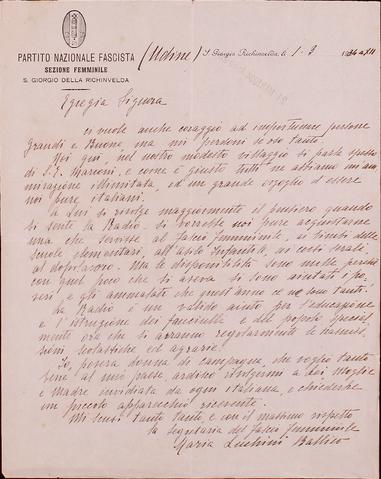 PARTITO NAZIONALE FASCISTA
SEZIONE FEMMINILE
S. GIORGIO DELLA RICHINVELDA
(Udine) S. Giorgio Richinvelda, li 1-3 1934 a XII
Egregia Signora
ci vuole anche coraggio ad importunare persone
Grandi e Buone, ma mi perdoni se oso tanto.
Noi qui, nel nostro modesto villaggio si parla spesso
di S.E. Marconi, e come è giusto tutti ne abbiamo un'am
mirazione illimitata, ed un grande orgoglio d'essere
noi pure italiani.
A Lui si rivolge maggiormente il pensiero quando
si sente la Radio. Si vorrebbe noi pure acquistarne
una che servisse al fascio femminile, ai bimbi delle
scuole elementari, all'asilo Infantile, ai corsi serali
al dopolavoro. Ma le disponibilità sono nulle perchè
con quel poco che si aveva si sono aiutati i po
veri, e gli ammalati che quest'anno ce ne son tanti.
La Radio è un valido aiuto per l'educazione
e l'istruzione dei fanciulli e del popolo special
mente ora che si avranno regolarmente le trasmis
sioni scolastiche ed agrarie.
Io, povera donna di campagna che voglio tanto
bene al mio paese, ardisco rivolgermi a Lei Moglie
e Madre invidiata da ogni italiana, e chiederle
un piccolo apparecchio ricevente.
Mi scusi tanto tanto e con il massimo rispetto
la segretaria del fascio femminile
Maria Luchini